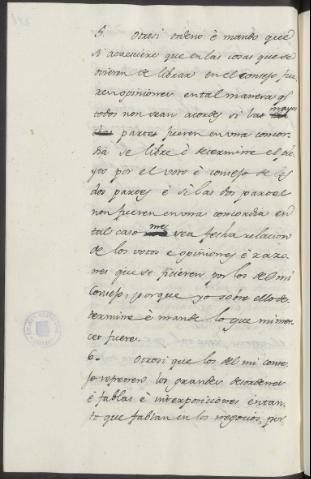 5. Otrosi ordeno è mando que
si acaeciere que en las cosas que se
ovieren de librar en el consejo fue
ren opiniones en tal manera q̃
todos non sean acordes si las
partes fueren en una concor
dia se libre è determine el fe
cho por el voto è consejo de las
dos partes è si las dos partes
non fueren en una concordia en
tal caso me sea fecha relacion
de los votos è opiniones è razo
nes que se ficieren por los del mi
Consejo, porque yo sobre ello de
termine è mande lo que mi mer
ced fuere.
6. Otrosi que los del mi conse
jo las grandes desordenes
è fablas è interposiciones entan
to que fablan en los negocios, por